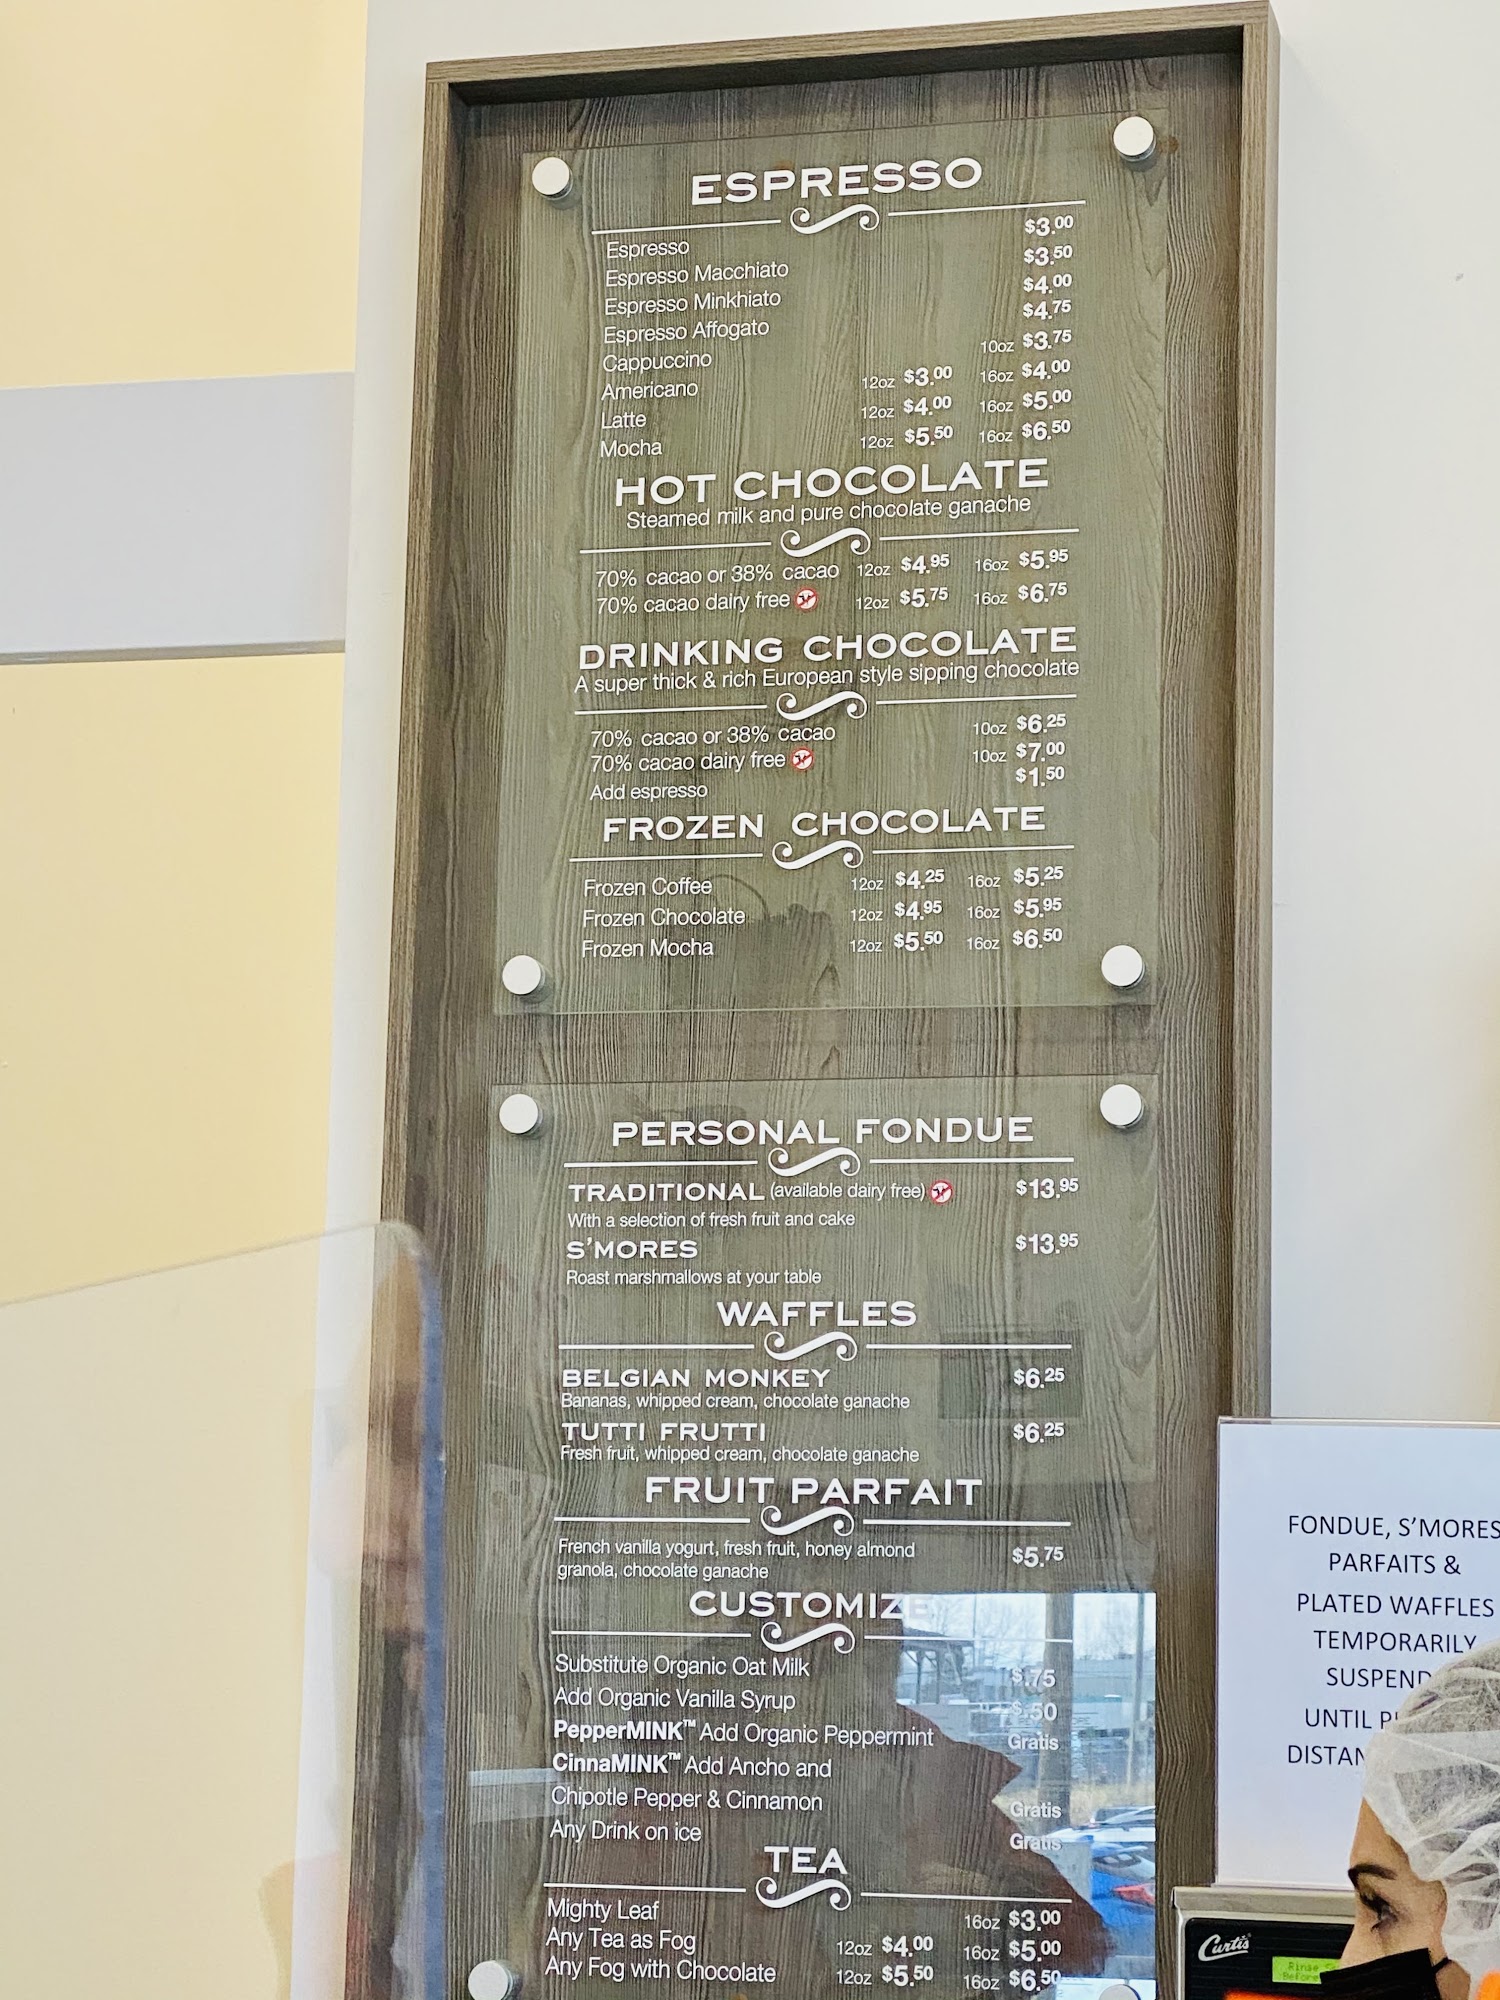 ESPRESSO
Espresso $3.00
Espresso Macchiato $3.50
Espresso Minkhiato $4.00
Espresso Affogato $4.75
Cappuccino 10oz $3.75
Americano 12oz $3.00 16oz $4.00
Latte 12oz $4.00 16oz $5.00
Mocha 12oz $5.50 16oz $6.50
HOT CHOCOLATE
Steamed milk and pure chocolate ganache
70% cacao or 38% cacao 12oz $4.95 16oz $5.95
70% cacao dairy free 12oz $5.75 16oz $6.75
DRINKING CHOCOLATE
A super thick & rich European style sipping chocolate
70% cacao or 38% cacao 10oz $6.25
70% cacao dairy free 10oz $7.00
Add espresso $1.50
FROZEN CHOCOLATE
Frozen Coffee 12oz $4.25 16oz $5.25
Frozen Chocolate 12oz $4.95 16oz $5.95
Frozen Mocha 12oz $5.50 16oz $6.50
PERSONAL FONDUE
TRADITIONAL (available dairy free) $13.95
With a selection of fresh fruit and cake
S'MORES $13.95
Roast marshmallows at your table
WAFFLES
BELGIAN MONKEY $6.25
Bananas, whipped cream, chocolate ganache
TUTTI FRUTTI $6.25
Fresh fruit, whipped cream, chocolate ganache
FRUIT PARFAIT
French vanilla yogurt, fresh fruit, honey almond
granola, chocolate ganache $5.75
CUSTOMIZE
Substitute Organic Oat Milk $.75
Add Organic Vanilla Syrup $.50
PepperMINK™ Add Organic Peppermint Gratis
CinnaMINK™ Add Ancho and
Chipotle Pepper & Cinnamon Gratis
Any Drink on ice Gratis
TEA
Mighty Leaf 16oz $3.00
Any Tea as Fog 12oz $4.00 16oz $5.00
Any Fog with Chocolate 12oz $5.50 16oz $6.50
FONDUE, S'MORES
PARFAITS &
PLATED WAFFLES
TEMPORARILY
SUSPEND
UNTIL
DISTAN
Curtis
Rinse
Before